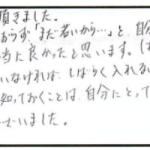 頂きました。
おらず「まだ若いから…」と、自分
当に良かったと思います。(
いなければ、しばらく入れる
知っておくことは、自分にとって
せいました。